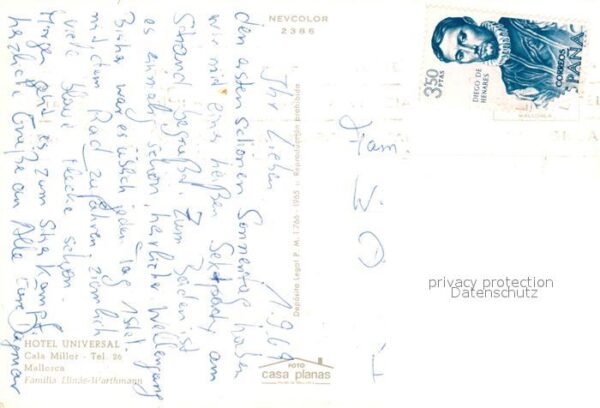 NEVCOLOR
2386
3,50
PTAS
DIEGO DE
HENARES
CORREOS
ESPAÑA
MALLORCA
1.9.69
Ihr Lieben
den ersten schönen Sonnentag haben
wir mit einer heißen Sektparty am
Strand begrüßt. Zum Baden ist
es einmalig schön, herrlicher Wellengang
Bisher war es üblich jeden Tag 1 Std.
mit dem Rad zu fahren, ziemlich
viele blaue Flecke schon.
Morgen geht es zum Stierkampf.
herzliche Grüße an Alle Eure Dagmar
Fam
Depósito Legal P. M. 1.766 - 1965 - Reproducción prohibida
privacy protection
Datenschutz
HOTEL UNIVERSAL
Cala Millor - Tel. 26
Mallorca
Familia Llinás-Warthmann
FOTO
casa planas